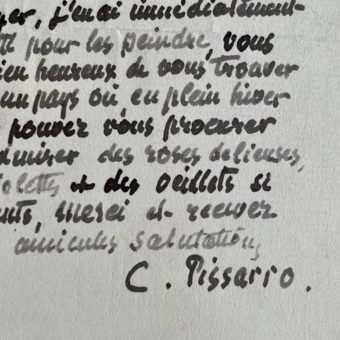 er, j'mai immédiatement
pour les peindre, vous
ien heureux de vous trouver
un pays où en plein hiver
pouvez vous procurer
dmirer des roses delieuses,
iolettes et des oeillets si
nts, merci et recever
amicales salutations,
C. Pissarro.